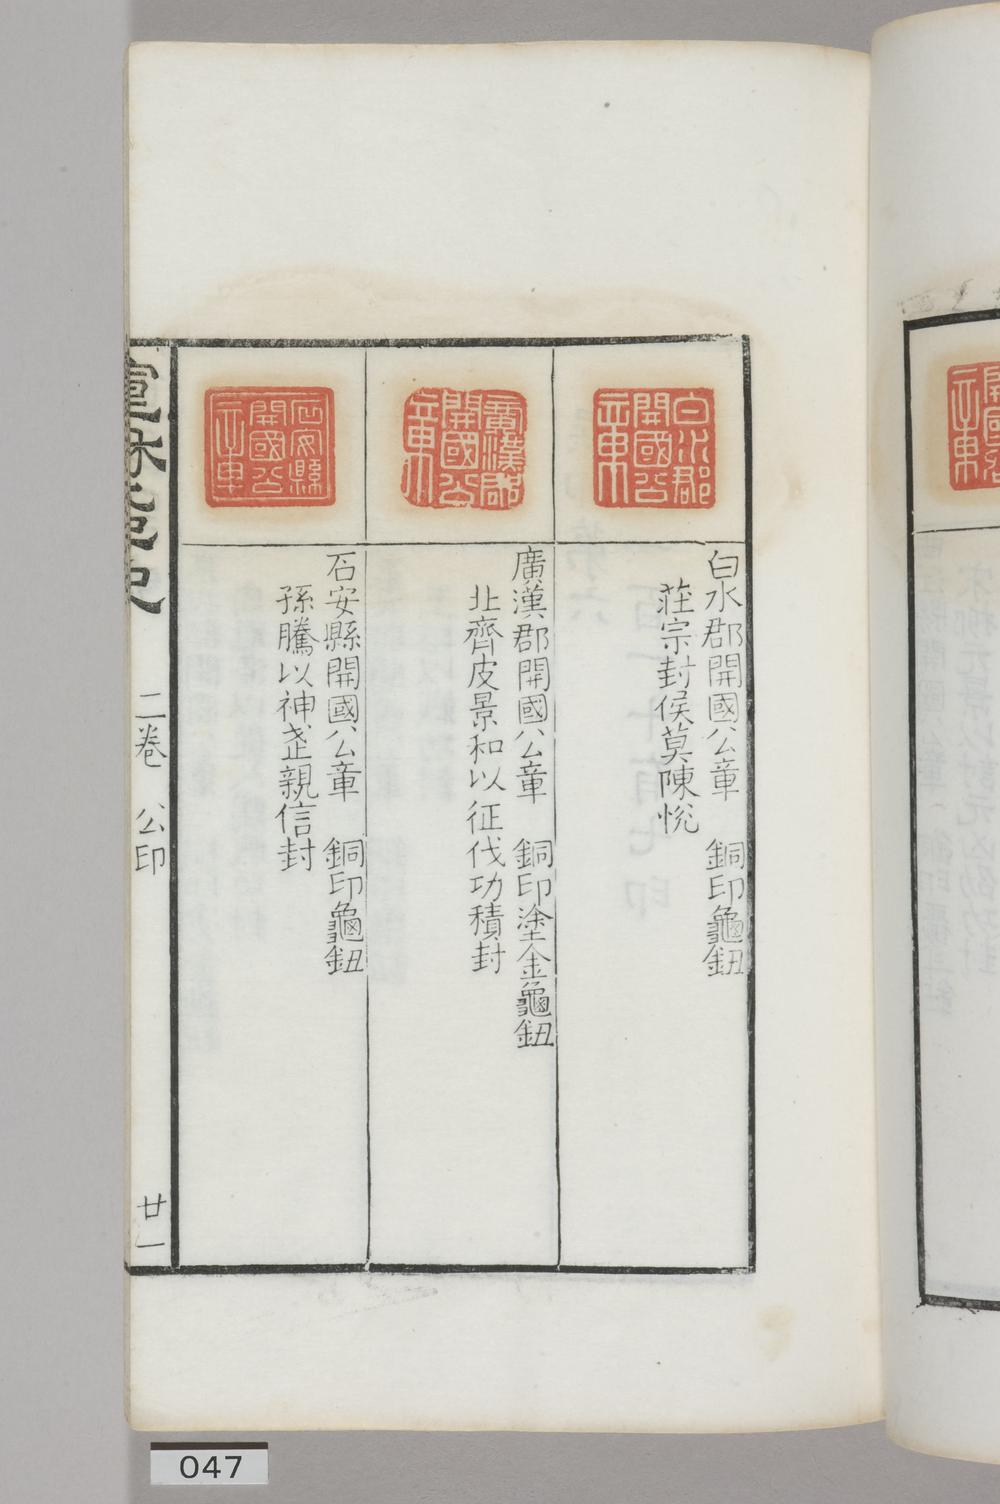 白水郡開國公章
白水郡開國公章 銅印龜鈕
莊宗封侯莫陳悅
廣漢郡開國公章
廣漢郡開國公章 銅印塗金龜鈕
北齊皮景和以征伐功積封
石安縣開國公章
石安縣開國公章 銅印龜鈕
孫騰以神武親信封
二卷 公印
廿一
047